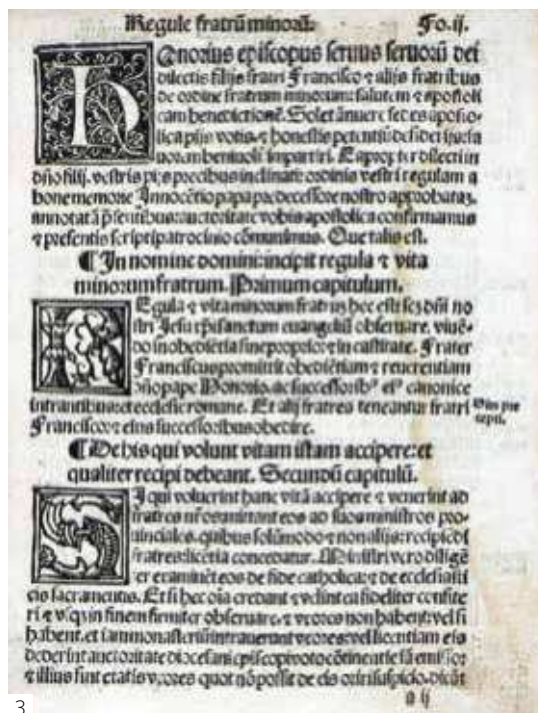 Regule fratrũ minorũ. Fo.ij.
HOnorius episcopus seruus seruorũ dei
dilectis filijs fratri Francisco ⁊ alijs fratribus
de ordine fratrum minorum: salutem ⁊ apostoli
cam benedictionẽ. Solet ãnuere sedes aposto-
lica pijs votis. ⁊ honestis petentiũ desiderijs fa
uorem beniuolũ impartiri. Eapropter dilecti in
dño filij. vestris pijs precibus inclinati: ordinis vestri regulam a
bone memorie Innocẽtio papa predecessore nostro approbatam,
annotatã pñsentibus: auctoritate vobis apostolica confirmamus
⁊ presentis scripti patrocinio cõmunimus. Que talis est.
¶ In nomine domini: incipit regula ⁊ vita
minorum fratrum. Primum capitulum.
REgula ⁊ vita minorum fratrũ hec est: scz dñi no
stri Jesu xp̃i sanctum euangeliũ obseruare. viuẽ-
do in obediẽtia sine proprio: ⁊ in castitate. Frater
Franciscus promittit obediẽtiam ⁊ reuerentiam
dño pape Honorio. ac successoribꝰ eiꝰ canonice
intrantibus: et ecclesie romane. Et alij fratres teneantur fratri
Francisco: ⁊ eius successoribus obedire.
¶ De his qui volunt vitam istam accipere: et
qualiter recipi debeant. Secundũ capitulũ.
SI qui voluerint hanc vitã accipere ⁊ venerint ad
fratres nr̃os: mittant eos ad suos ministros pro-
uinciales. quibus solũmodo ⁊ non alijs: recipiẽdi
fratres: licẽtia concedatur. Ministri vero diligẽ
ter examinẽt eos de fide catholica: ⁊ de ecclesiasti
cis sacramentis. Et si hec oĩa credant ⁊ velint ea fideliter confite
ri ⁊ vsqꝫ in finem firmiter obseruare. ⁊ vxores non habent: vel si
habent. et iam monasteriũ intrauerunt vxores: vel licentiam eis
dederint auctoritate diocesani episcopi voto cõtinentie iã emisso:
⁊ illius sint etatis vxores quot nõ possit de eis oriri suspicio. dicãt
a ij
3